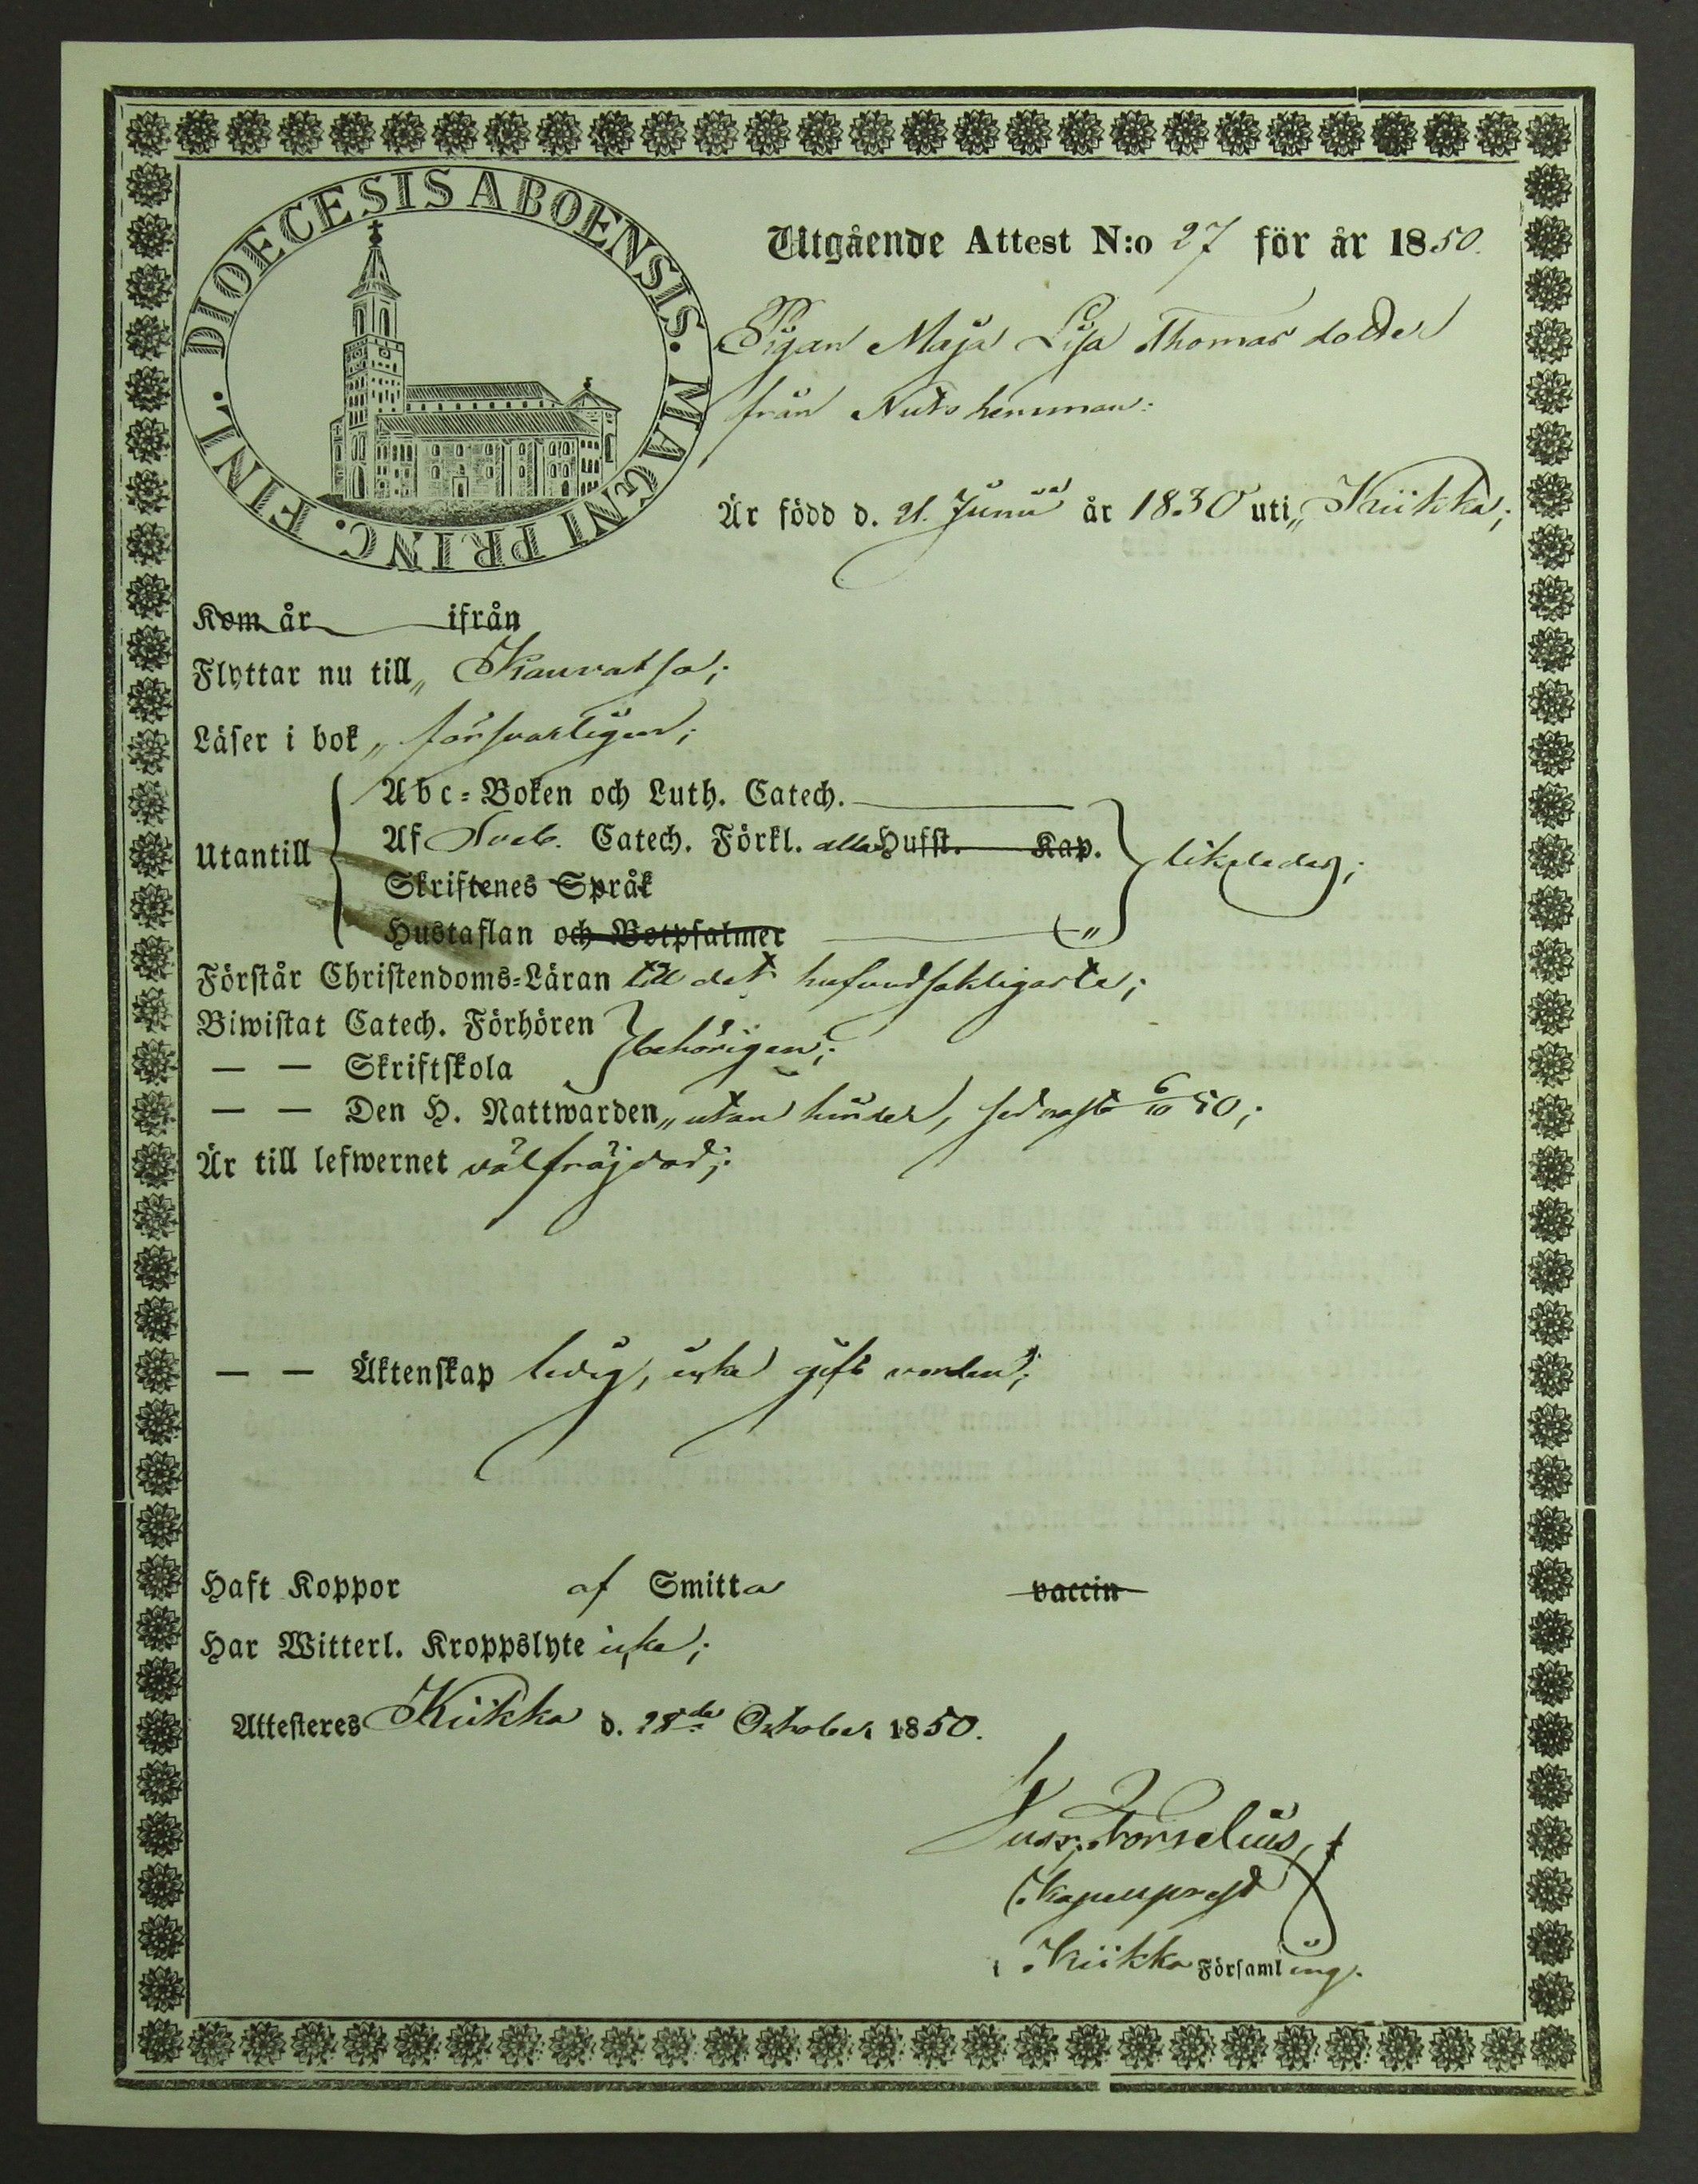 DIOECESIS ABOENSIS. MAGNI PRINC. FINL.
Utgående Attest N:o 27 för år 1850.
Pigan Maja Lisa Thomas dotter
från Nuts hemman:
Är född d. 21. Junii år 1830 uti „ Kiikka;
Kom år ifrån
Flyttar nu till „ Kauvatsa;
Läser i bok „ försvarligen;
Utantill
Abc-Boken och Luth. Catech.
Af Sveb. Catech. Förkl. alla Hufst. Kap.
likaledes;
Skriftenes Språk
Hustaflan och Botpsalmer „
Förstår Christendoms-Läran till det hufvudsakligaste;
Biwistat Catech. Förhören
behörigen;
— — Skriftskola
— — Den H. Nattwarden „ utan hinder, sednast 6/10 50;
Är till lefwernet välfräjdad;
— — Äktenskap ledig, icke gift vorden;
Haft Koppor af Smitta vaccin
Har Witterl. Kroppslyte icke;
Attesteres Kiikka d. 28de October 1850.
Forselius,
Kapellprest
i Kiikka Församling.